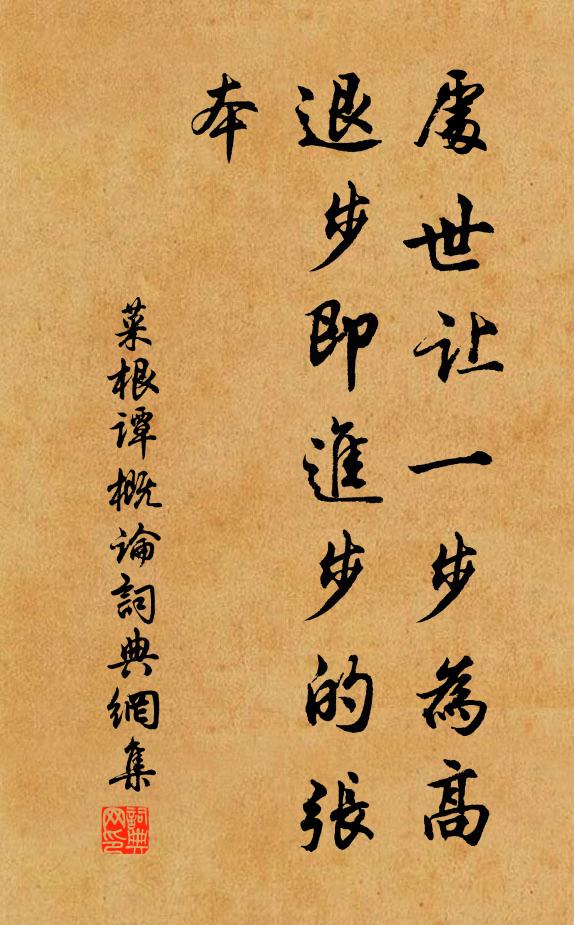 處世让一步為高
退步即進步的張
本
菜根谭概論詞典網集
詞典网印